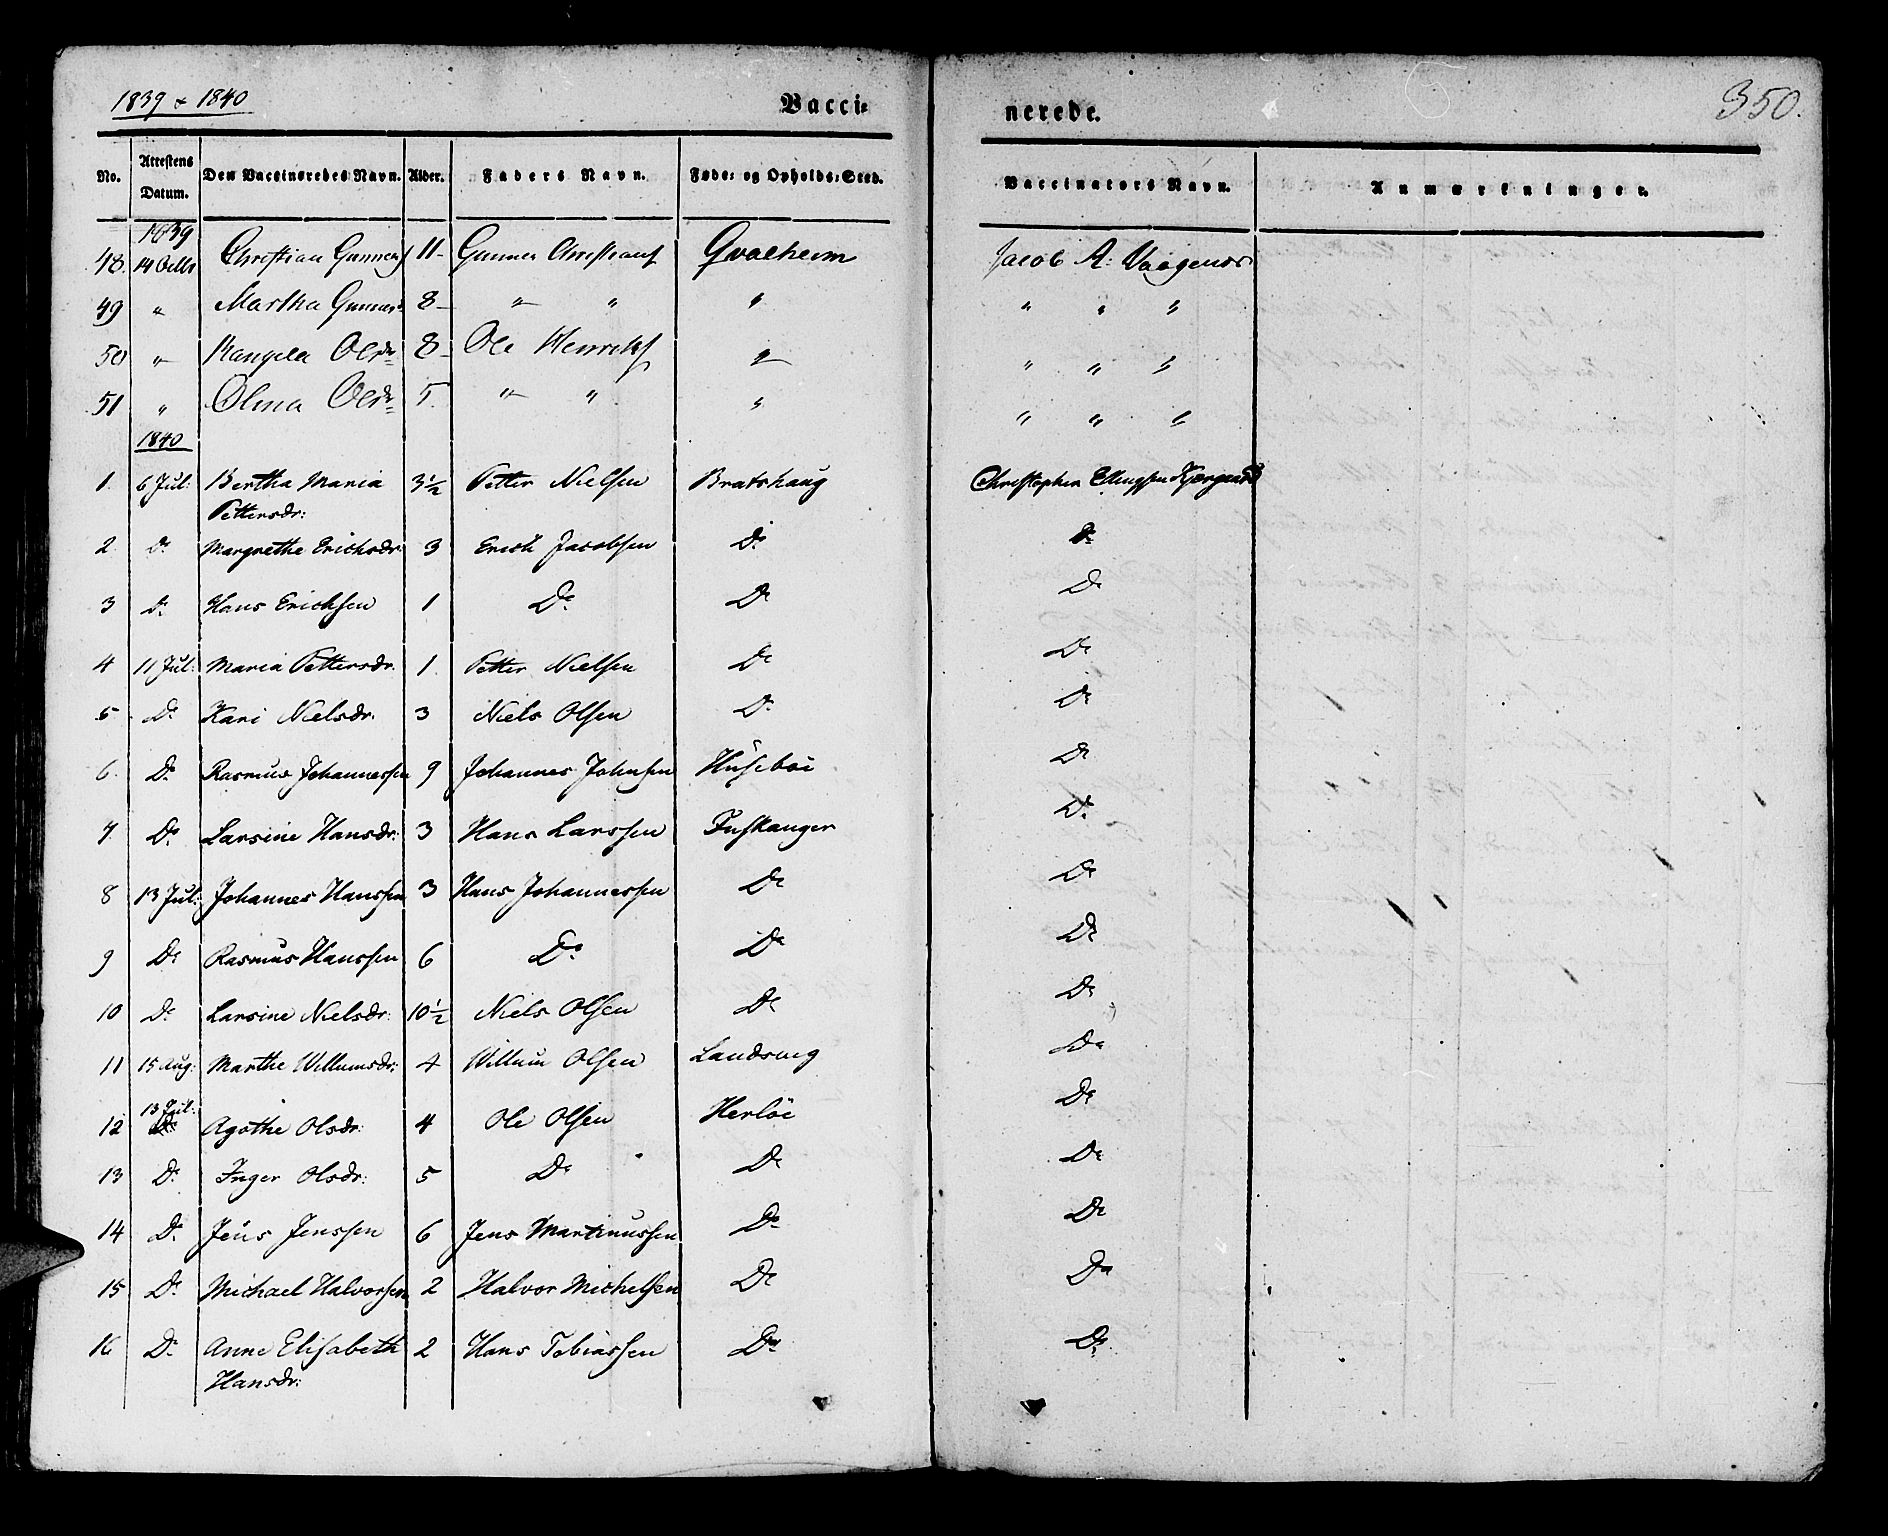 1839 & 1840 Vaccinerede. 350.
No. Attestens Datum. Den Vaccineredes Navn. Alder. Faders Navn. Føde- og Opholds-Sted. Vaccinators Navn. Anmærkninger.
1839
48. 14 Octbr Christian Gunners 11 - Gunner Christians Qvalheim Jacob A: Vaagenes
49 " Martha Gunnersd 8 - " " " " " "
50 " Rangela Olsdr 8 - Ole Henriks " " " "
51 " Olina Olsdr 5. " " " " " "
1840
1. 6 Jul: Bertha Maria 3½ Petter Nielsen Bratshaug Christopher Ellingsen
Pettersdr:
2. Do Margrethe Erichsdr 3 Erich Jacobsen Do Do
3 Do Hans Erichsen 1 Do Do Do
4 11 Jul: Maria Pettersdr. 1. Petter Nielsen Do Do
5 Do Kari Nielsdr. 3 Niels Olsen Do Do
6. Do Rasmus Johannessen 9 Johannes Johnsen Husebøe Do
7. Do Larsine Hansdr: 3 Hans Larssen Fuskanger Do
8 13 Jul: Johannes Hanssen 3 Hans Johannessen Do Do
9 Do Rasmus Hanssen 6 Do Do Do
10 Do Larsine Nielsdr: 10½ Niels Olsen Do Do
11 15 Aug: Marthe Willumsdr: 4 Willum Olsen Landsvig Do
12 13 Jul: Agathe Olsdr: 4 Ole Olsen Herløe Do
13 Do Inger Olsdr: 5 Do Do Do
14 Do Jens Jenssen 6 Jens Martinussen Do Do
15 Do Michael Halvorsen 2 Halvor Michelsen Do Do
16 Do Anne Elisabeth 2 Hans Tobiassen Do Do
Hansdr: